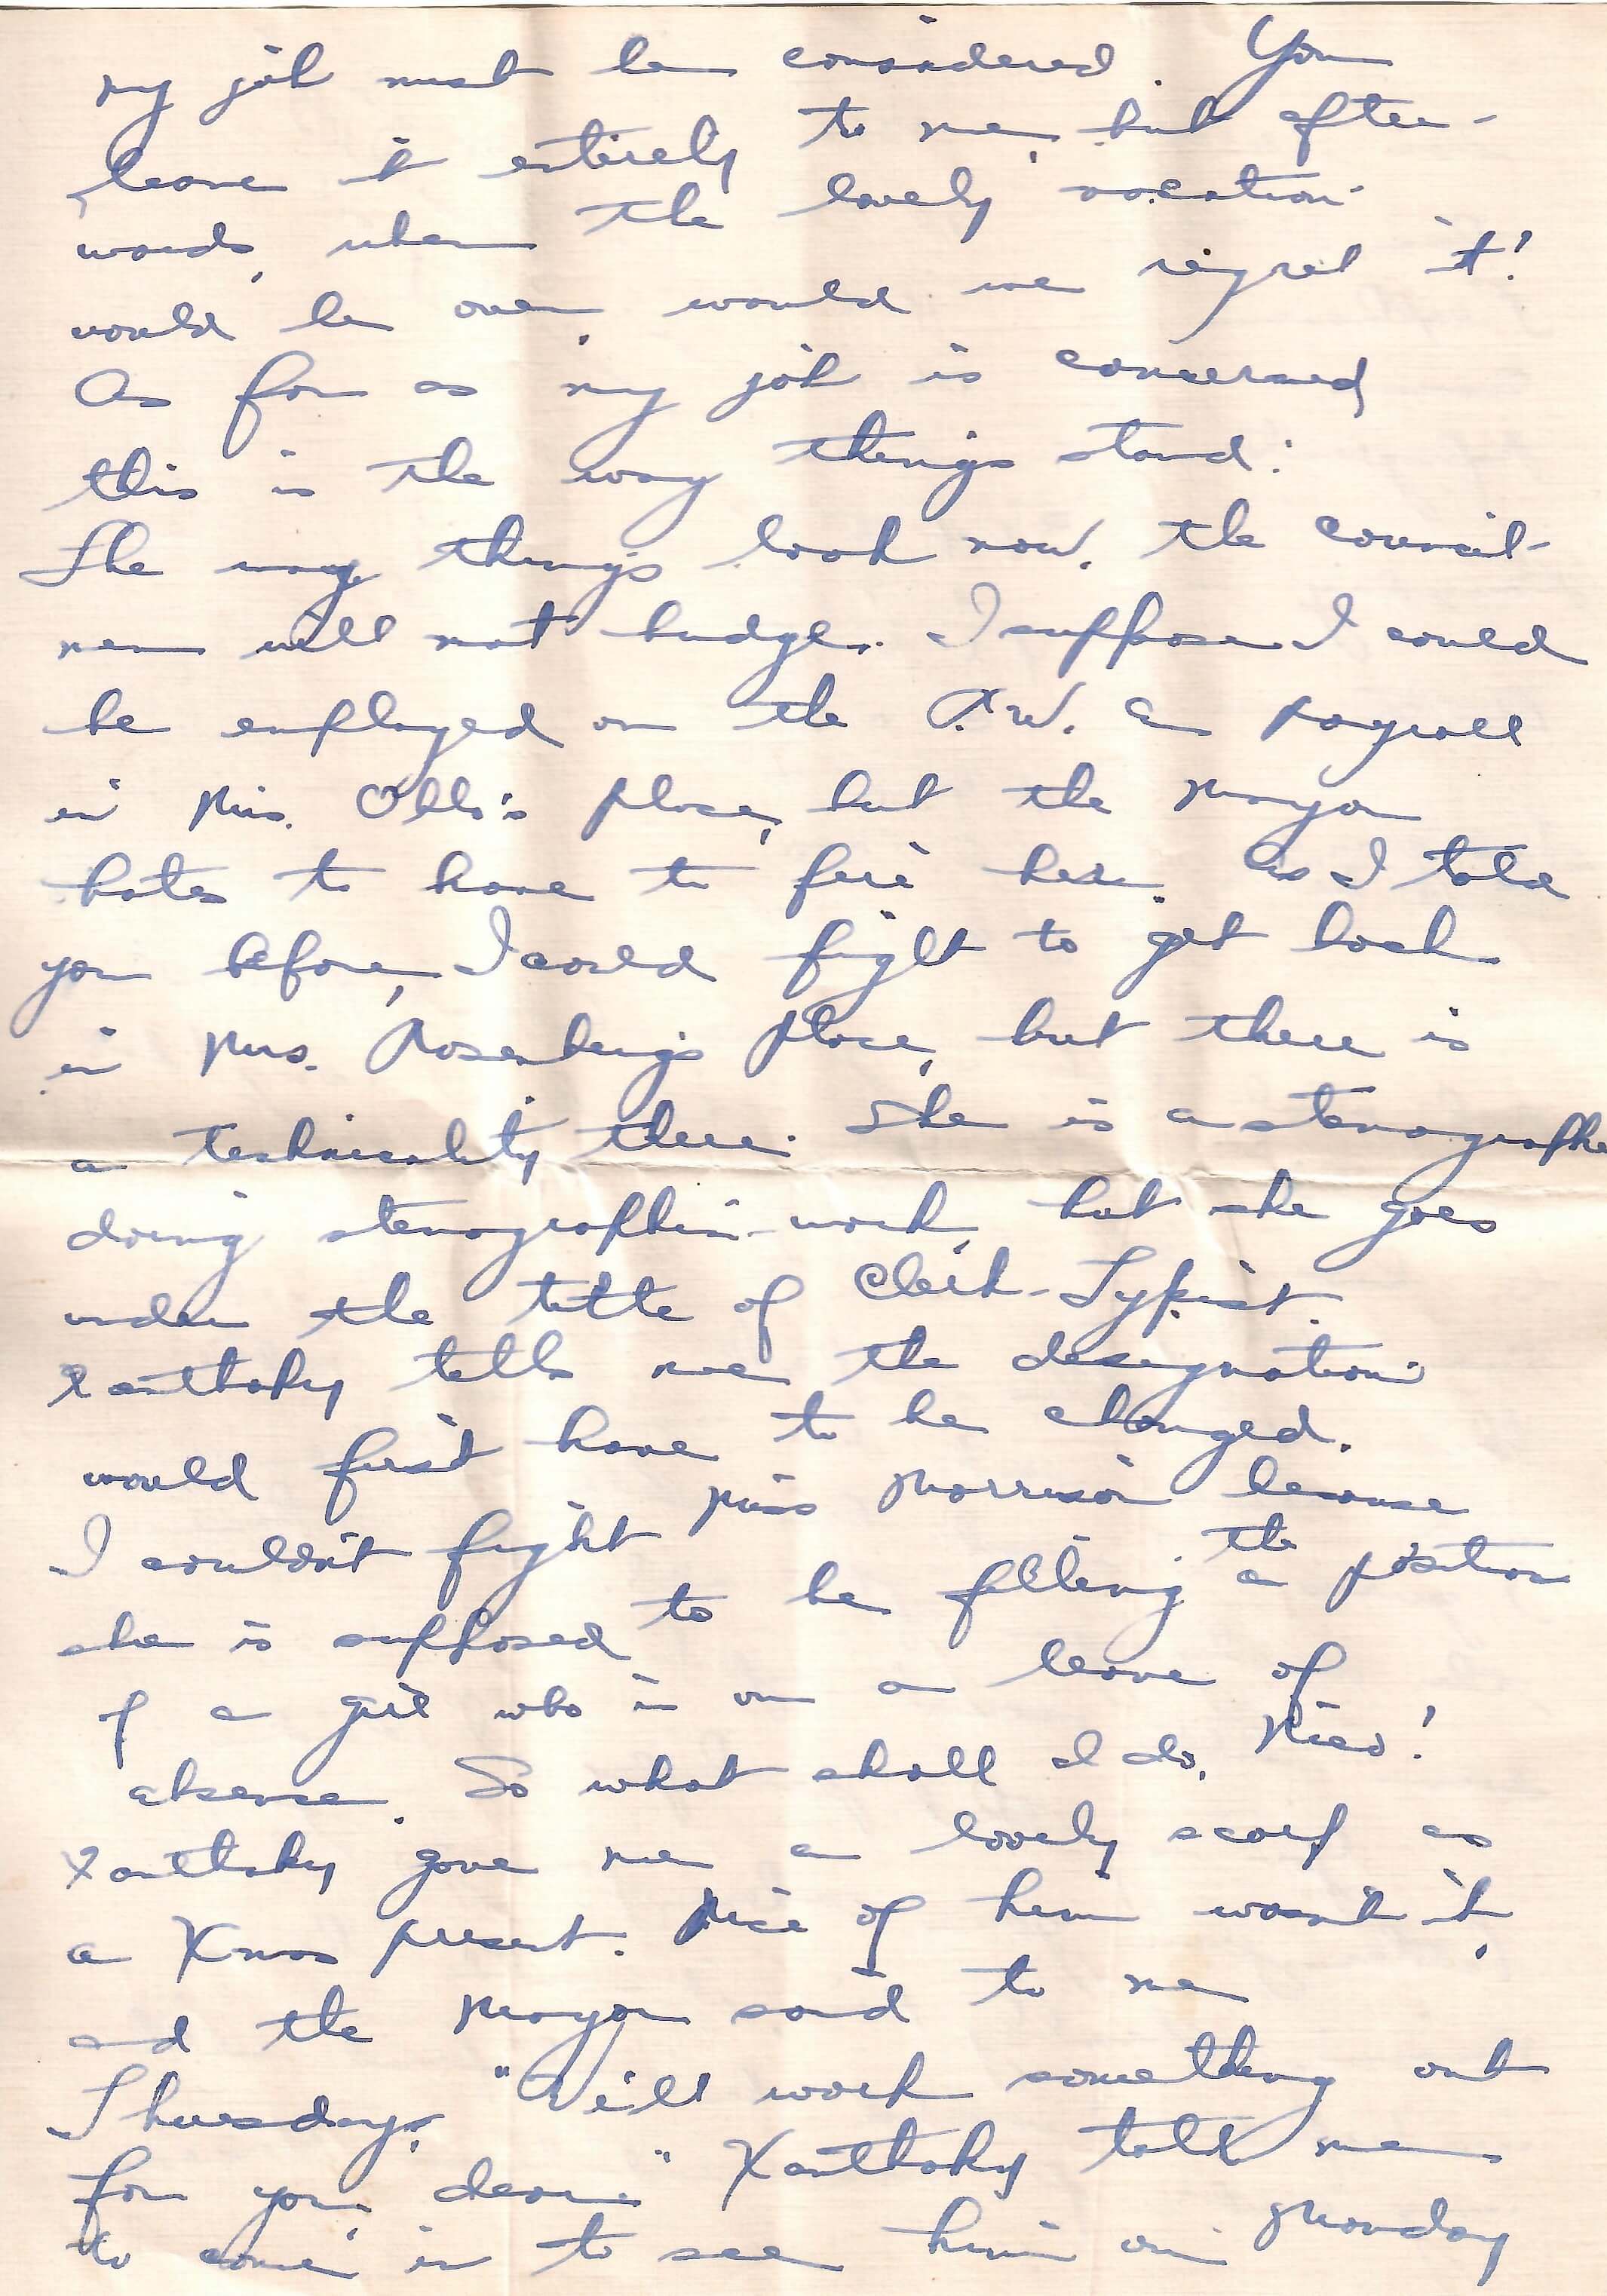 my job must be considered. You
leave it entirely to me, but after-
wards, when the lovely vacation
would be over, would we regret it!
As far as my job is concerned
this is the way things stand:
The way things look now, the council-
men will not budge. I suppose I could
be employed on the P.W.A payroll
in Mrs. place, but the Mayor
hates to have to fire her. As I told
you before, I could fight to get back
in Mrs. Rosenberg's place, but there is
a technicality there. She is a stenographe
doing stenographic work, but she goes
under the title of Clerk-Typist.
Xanthaky tells me the designation
would first have to be changed.
I couldn't fight Miss Morrison because
she is supposed to be filling the a position
of a girl who is on a leave of
absense. So what shall I do,
Xanthaky gave me a lovely scarf as
a Xmas present. Nice of him wasn't it,
and the Mayor said to me
Thursday, "We'll work something out
for you, dear." Xanthaky told me
to come in to see him on Monday